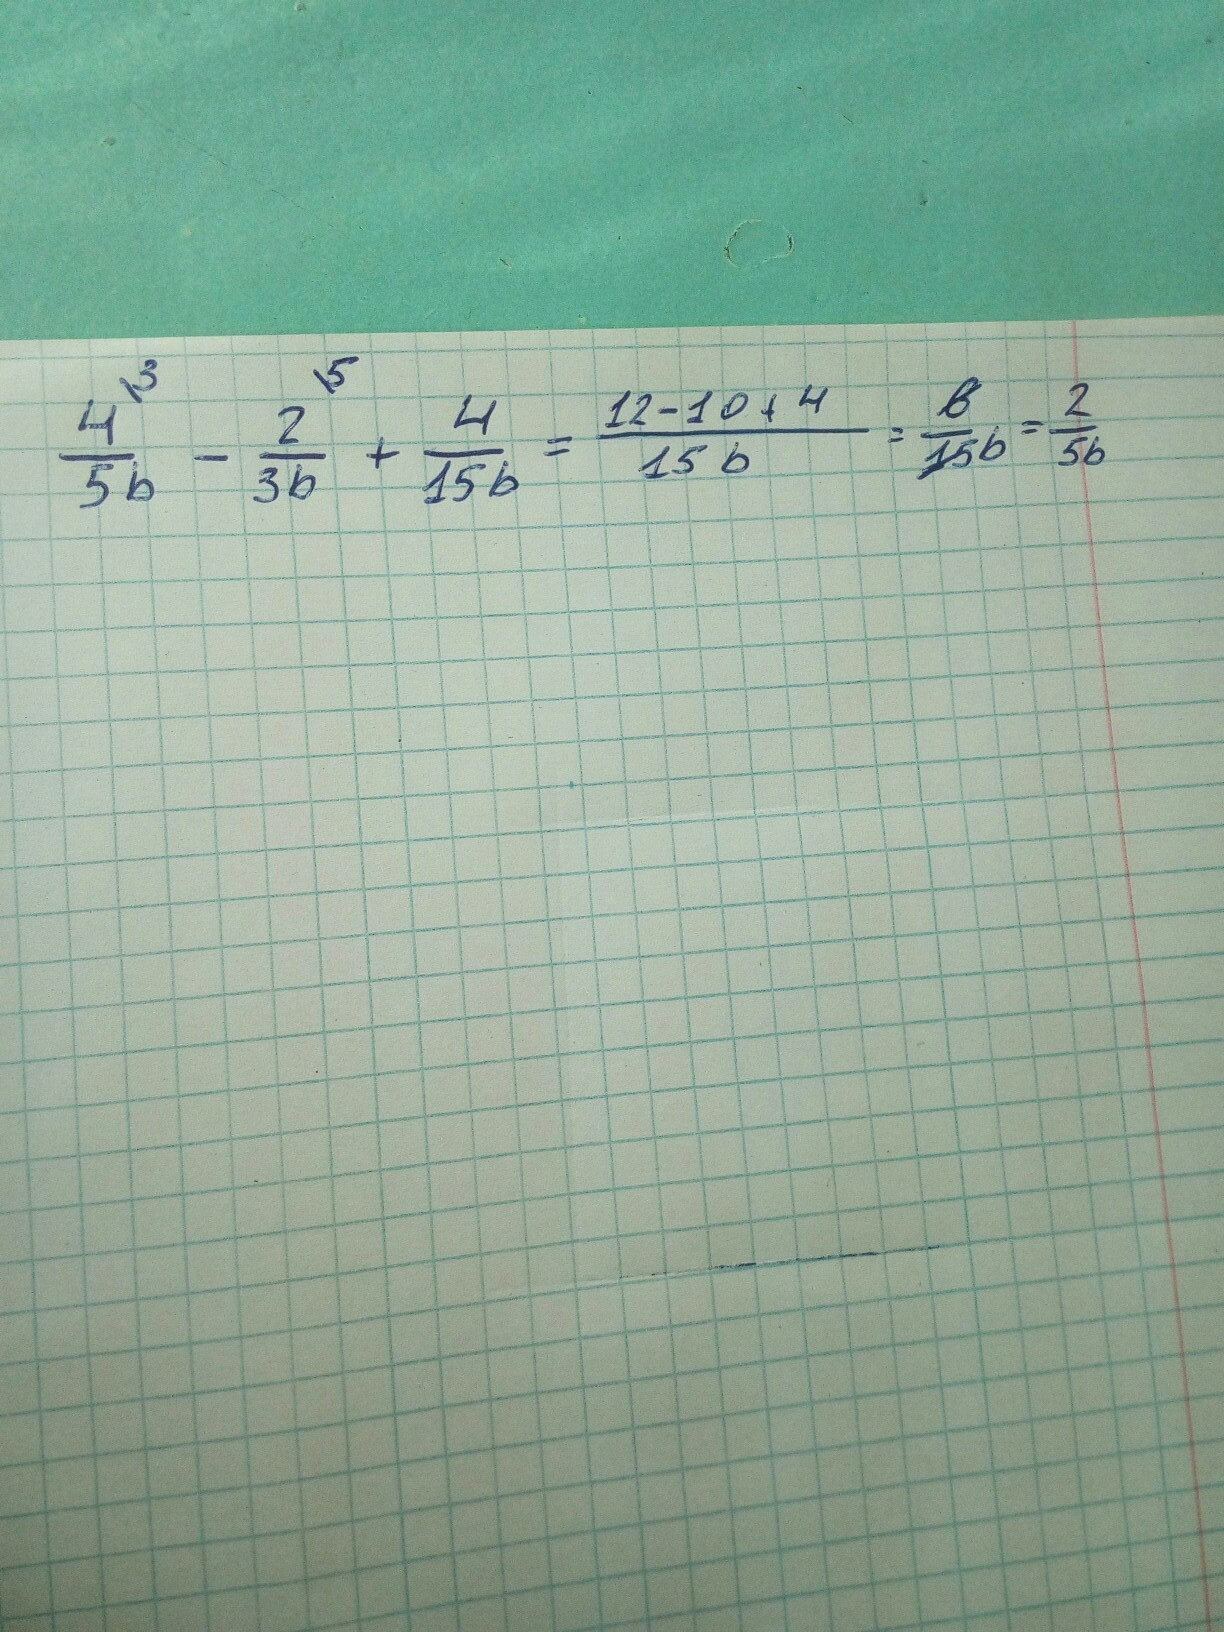 4\3/5b - 2\5/3b + 4/15b = 12-10+4/15b = 6/15b = 2/5b